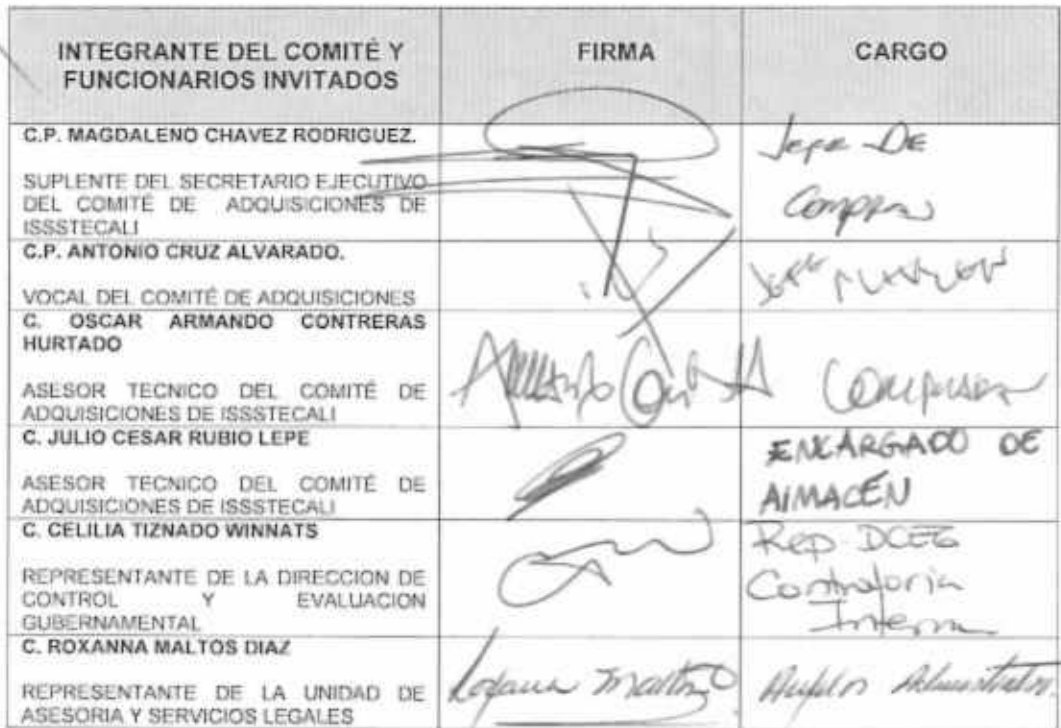 INTEGRANTE DEL COMITÉ Y
FUNCIONARIOS INVITADOS
FIRMA
CARGO
C.P. MAGDALENO CHAVEZ RODRIGUEZ.
SUPLENTE DEL SECRETARIO EJECUTIVO
DEL COMITÉ DE ADQUISICIONES DE
ISSSTECALI
Jefe De
Compras
C.P. ANTONIO CRUZ ALVARADO.
VOCAL DEL COMITÉ DE ADQUISICIONES
C. OSCAR ARMANDO CONTRERAS
HURTADO
ASESOR TECNICO DEL COMITÉ DE
ADQUISICIONES DE ISSSTECALI
Comprador
C. JULIO CESAR RUBIO LEPE
ASESOR TECNICO DEL COMITÉ DE
ADQUISICIONES DE ISSSTECALI
ENCARGADO DE
AlMACÉN
C. CELILIA TIZNADO WINNATS
REPRESENTANTE DE LA DIRECCION DE
CONTROL Y EVALUACION
GUBERNAMENTAL
Rep. DCEG
Contraloria
Interna
C. ROXANNA MALTOS DIAZ
REPRESENTANTE DE LA UNIDAD DE
ASESORIA Y SERVICIOS LEGALES